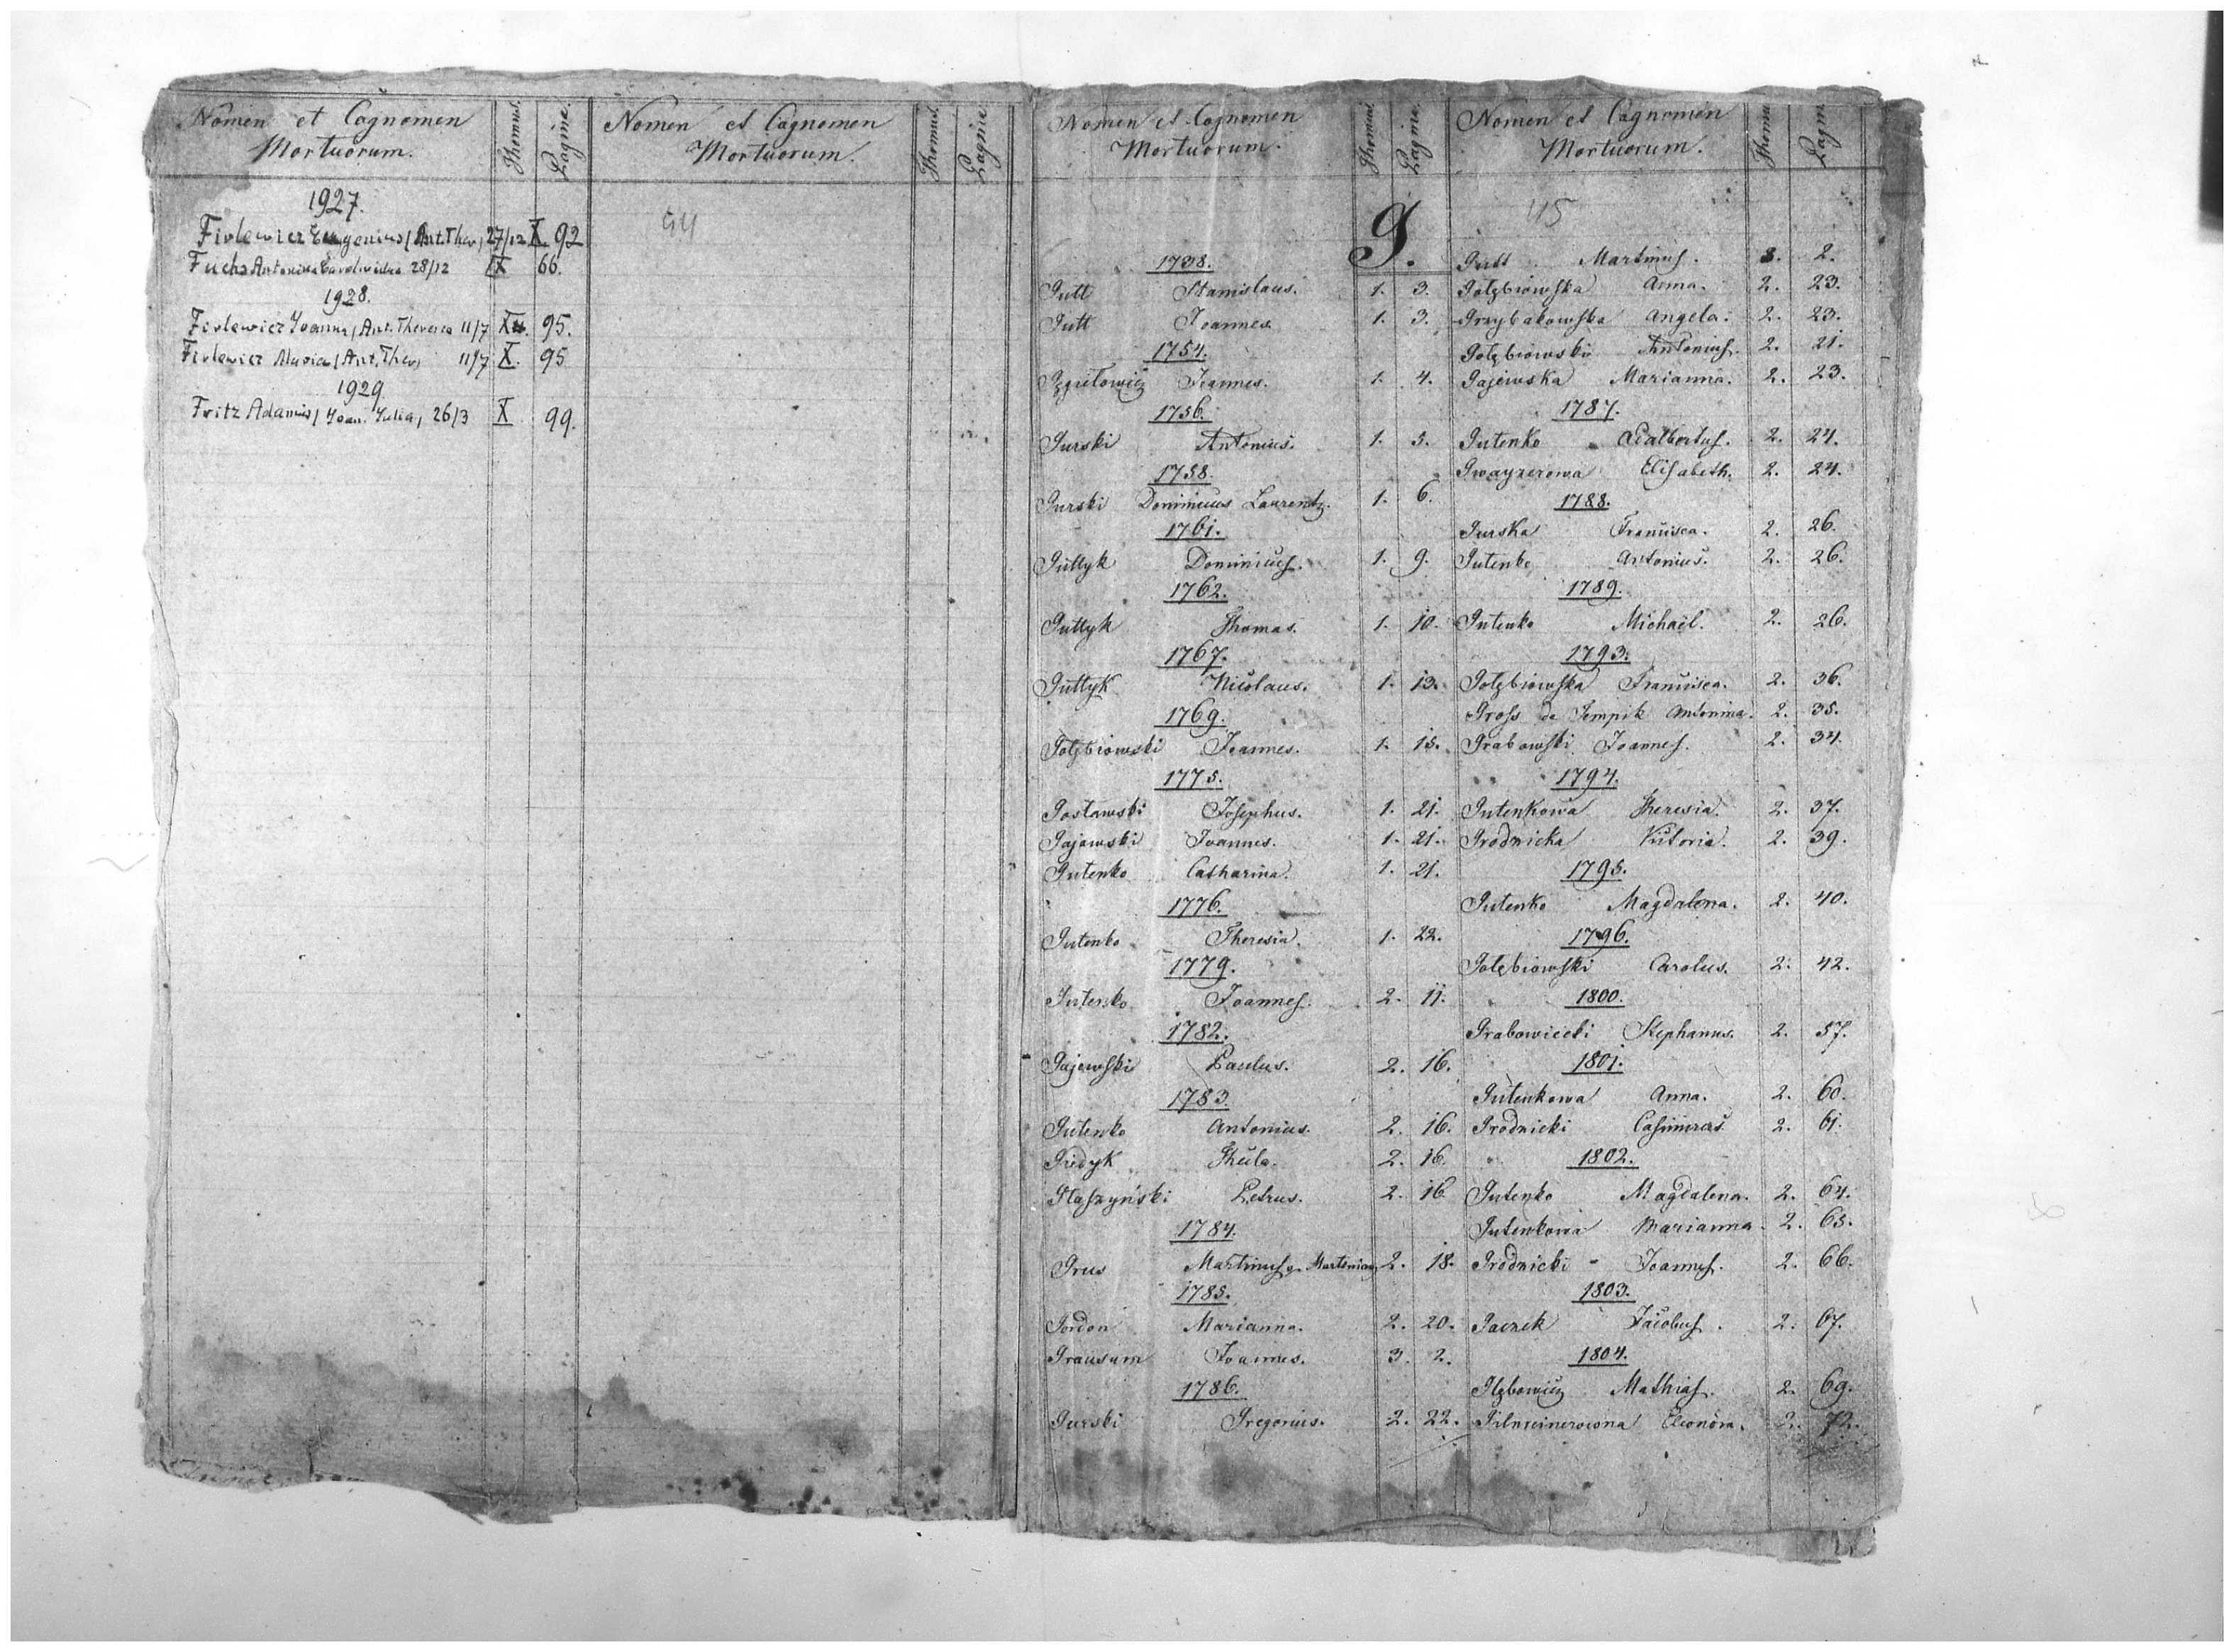 Nomen et Cagnomen
Mortuorum.
Thomus.
Pagina.
1927.
Firlewicz Eugenius (Ant. Ther) 27/12 X 92
Fuchs Antonina 28/12 IX 66.
1928.
Firlewicz Joanna (Ant. Theresa 11/7 X. 95.
Firlewicz Maria (Ant. Ther) 11/7 X. 95
1929
Fritz Adamus (Joan. Julia) 26/3 X 99.
Nomen et Cagnomen
Mortuorum.
Thomus.
Pagina
44
Nomen et Cagnomen
Mortuorum.
Thomus.
Pagina.
G.
1738.
Gutt Stanislaus. 1. 3.
Gutt Joannes 1. 3.
1754.
Joannes. 1. 4.
1756.
Gurski Antonius. 1. 5.
1758.
Gurski Dominicus Laurentz. 1. 6.
1761.
Guttyk Dominicus. 1. 9.
1762.
Guttyk Thomas. 1. 10.
1767.
Guttyk Nicolaus. 1. 13.
1769.
Gołębiowski Joannes. 1. 15.
1775.
Gostawski Josephus. 1. 21.
Gajewski Joannes. 1. 21.
Gutenko Catharina. 1. 21.
1776.
Gutenko Theresia. 1. 22.
1779.
Gutenko Joannes. 2. 11.
1782.
Gajewski Paulus. 2. 16.
1783.
Gutenko Antonius. 2. 16.
Gredyk Thecla. 2. 16.
Głaszyński Petrus. 2. 16
1784.
Grus Martinus 2. 18.
1785.
Gordon Marianna. 2. 20.
Grausam Joannes. 3. 2.
1786.
Gurski Gregorius. 2. 22.
Nomen et Cagnomen
Mortuorum.
Thomus
Pagina
45
Gutt Martinus. 3. 2.
Gołębiowska Anna. 2. 23.
Grzybakowska Angela. 2. 23.
Gołębiowski Antonius. 2. 21.
Gajewska Marianna. 2. 23.
1787.
Gutenko Adalbertus. 2. 24.
Gwayzerowa Elisabeth. 2. 24.
1788.
Gurska Francisca. 2. 26.
Gutenko Antonius. 2. 26.
1789.
Gutenko Michaël. 2. 26.
1793.
Gołębiowska Francisca. 2. 36.
Gross de Tempik Antonina. 2. 35.
Grabowski Joannes. 2. 34.
1794.
Gutenkowa Theresia. 2. 37.
Grodnicka Victoria. 2. 39.
1795.
Gutenko Magdalena. 2. 40.
1796.
Gołębiowski Carolus. 2. 42.
1800.
Grabowiecki Stephanus. 2. 57.
1801.
Gutenkowa Anna. 2. 60.
Grodnicki Casimirus 2. 61.
1802.
Gutenko Magdalena. 2. 64.
Gutenkowa Marianna. 2. 65.
Grodnicki Joannes. 2. 66.
1803.
Gaczek Jacobus. 2. 67.
1804.
Głębowicz Mathias. 2. 69.
Eleonora. 2. 72.